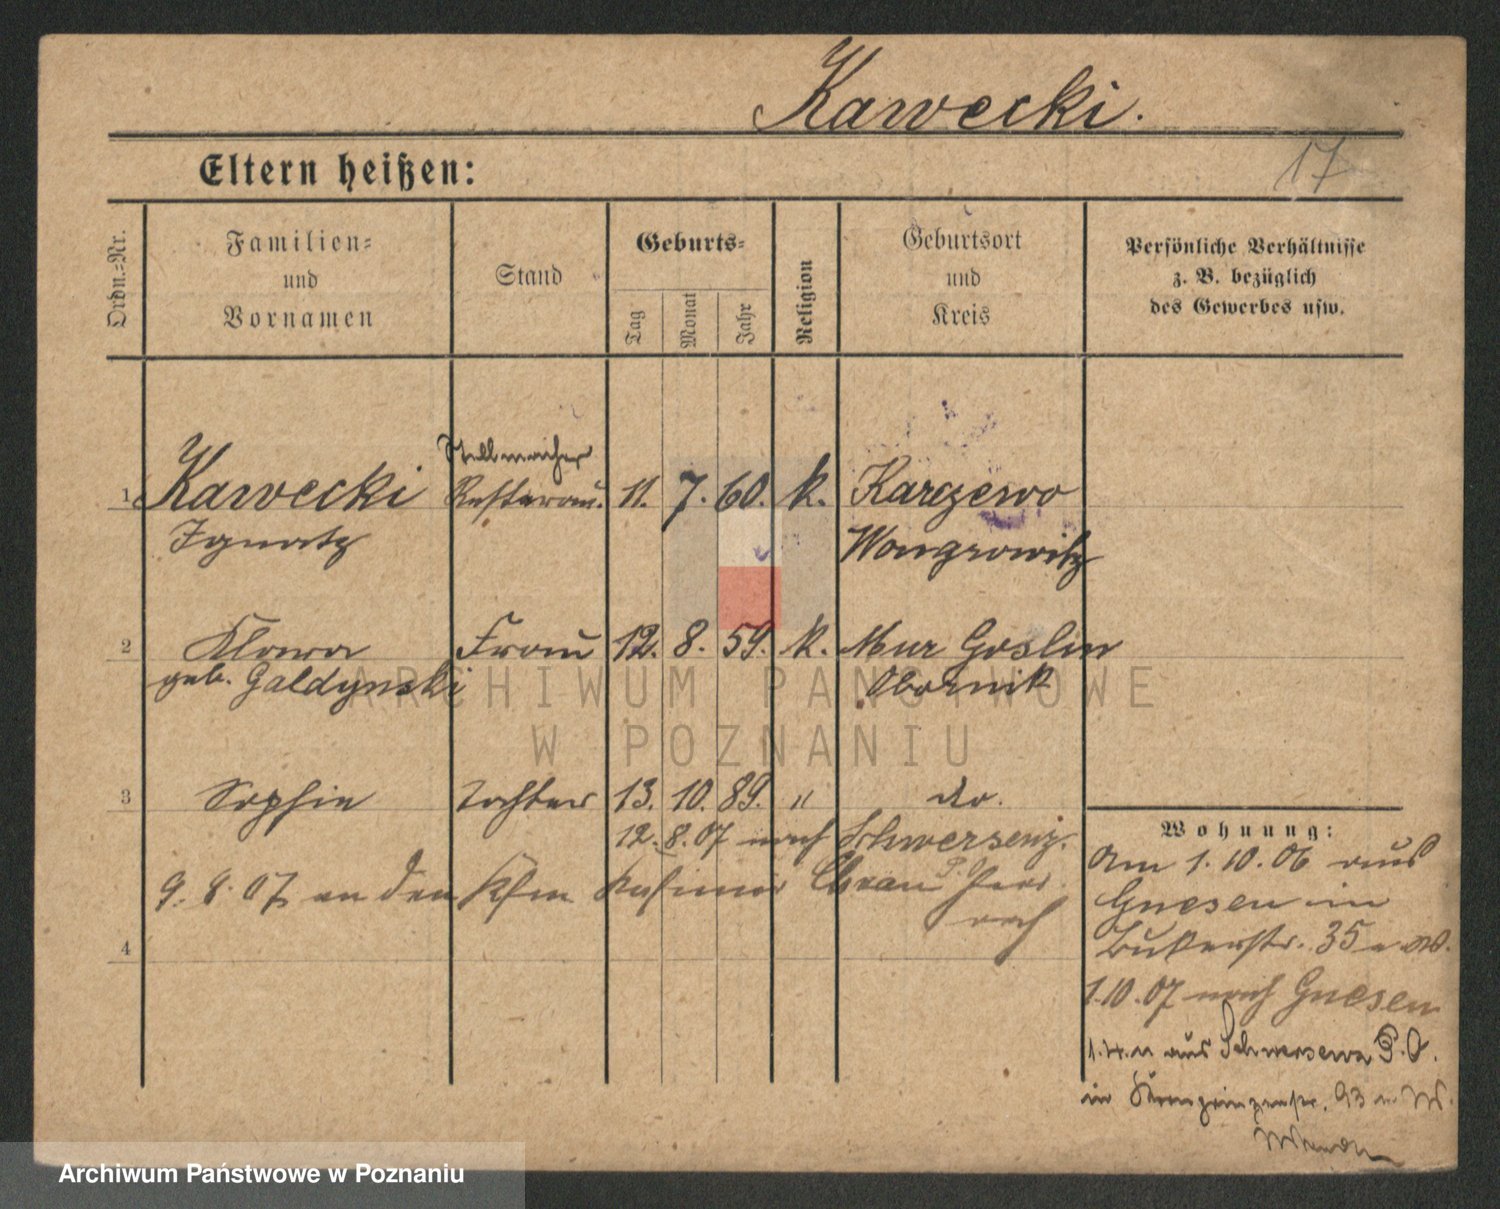 Kawecki.
17
Eltern heißen:
Ordn.=Nr.
Familien=
und
Vornamen
Stand
Geburts=
Tag
Monat
Jahr
Religion
Geburtsort
und
Kreis
Persönliche Verhältnisse
z. B. bezüglich
des Gewerbes usw.
Stellmacher
1 Kawecki Restaurau. 11. 7. 60. k. Karczewo
Ignatz Wongrowitz
2 Klara Frau 12. 8. 59. k. Mur Goslin
geb. Galdynski Obornik
3 Sophie Tochter 13. 10. 89. " do.
12. 8. 07 nach Schwersenz.
9. 8. 07 an den Kfm Kasimir
4
Wohnung:
Am 1. 10. 06 aus
Gnesen in
Bukerstr. 35
1.10.07 nach Gnesen
aus Schwersenz P. O.
in Kronprinzenstr. 93
ARCHIWUM PAŃSTWOWE
W POZNANIU
Archiwum Państwowe w Poznaniu